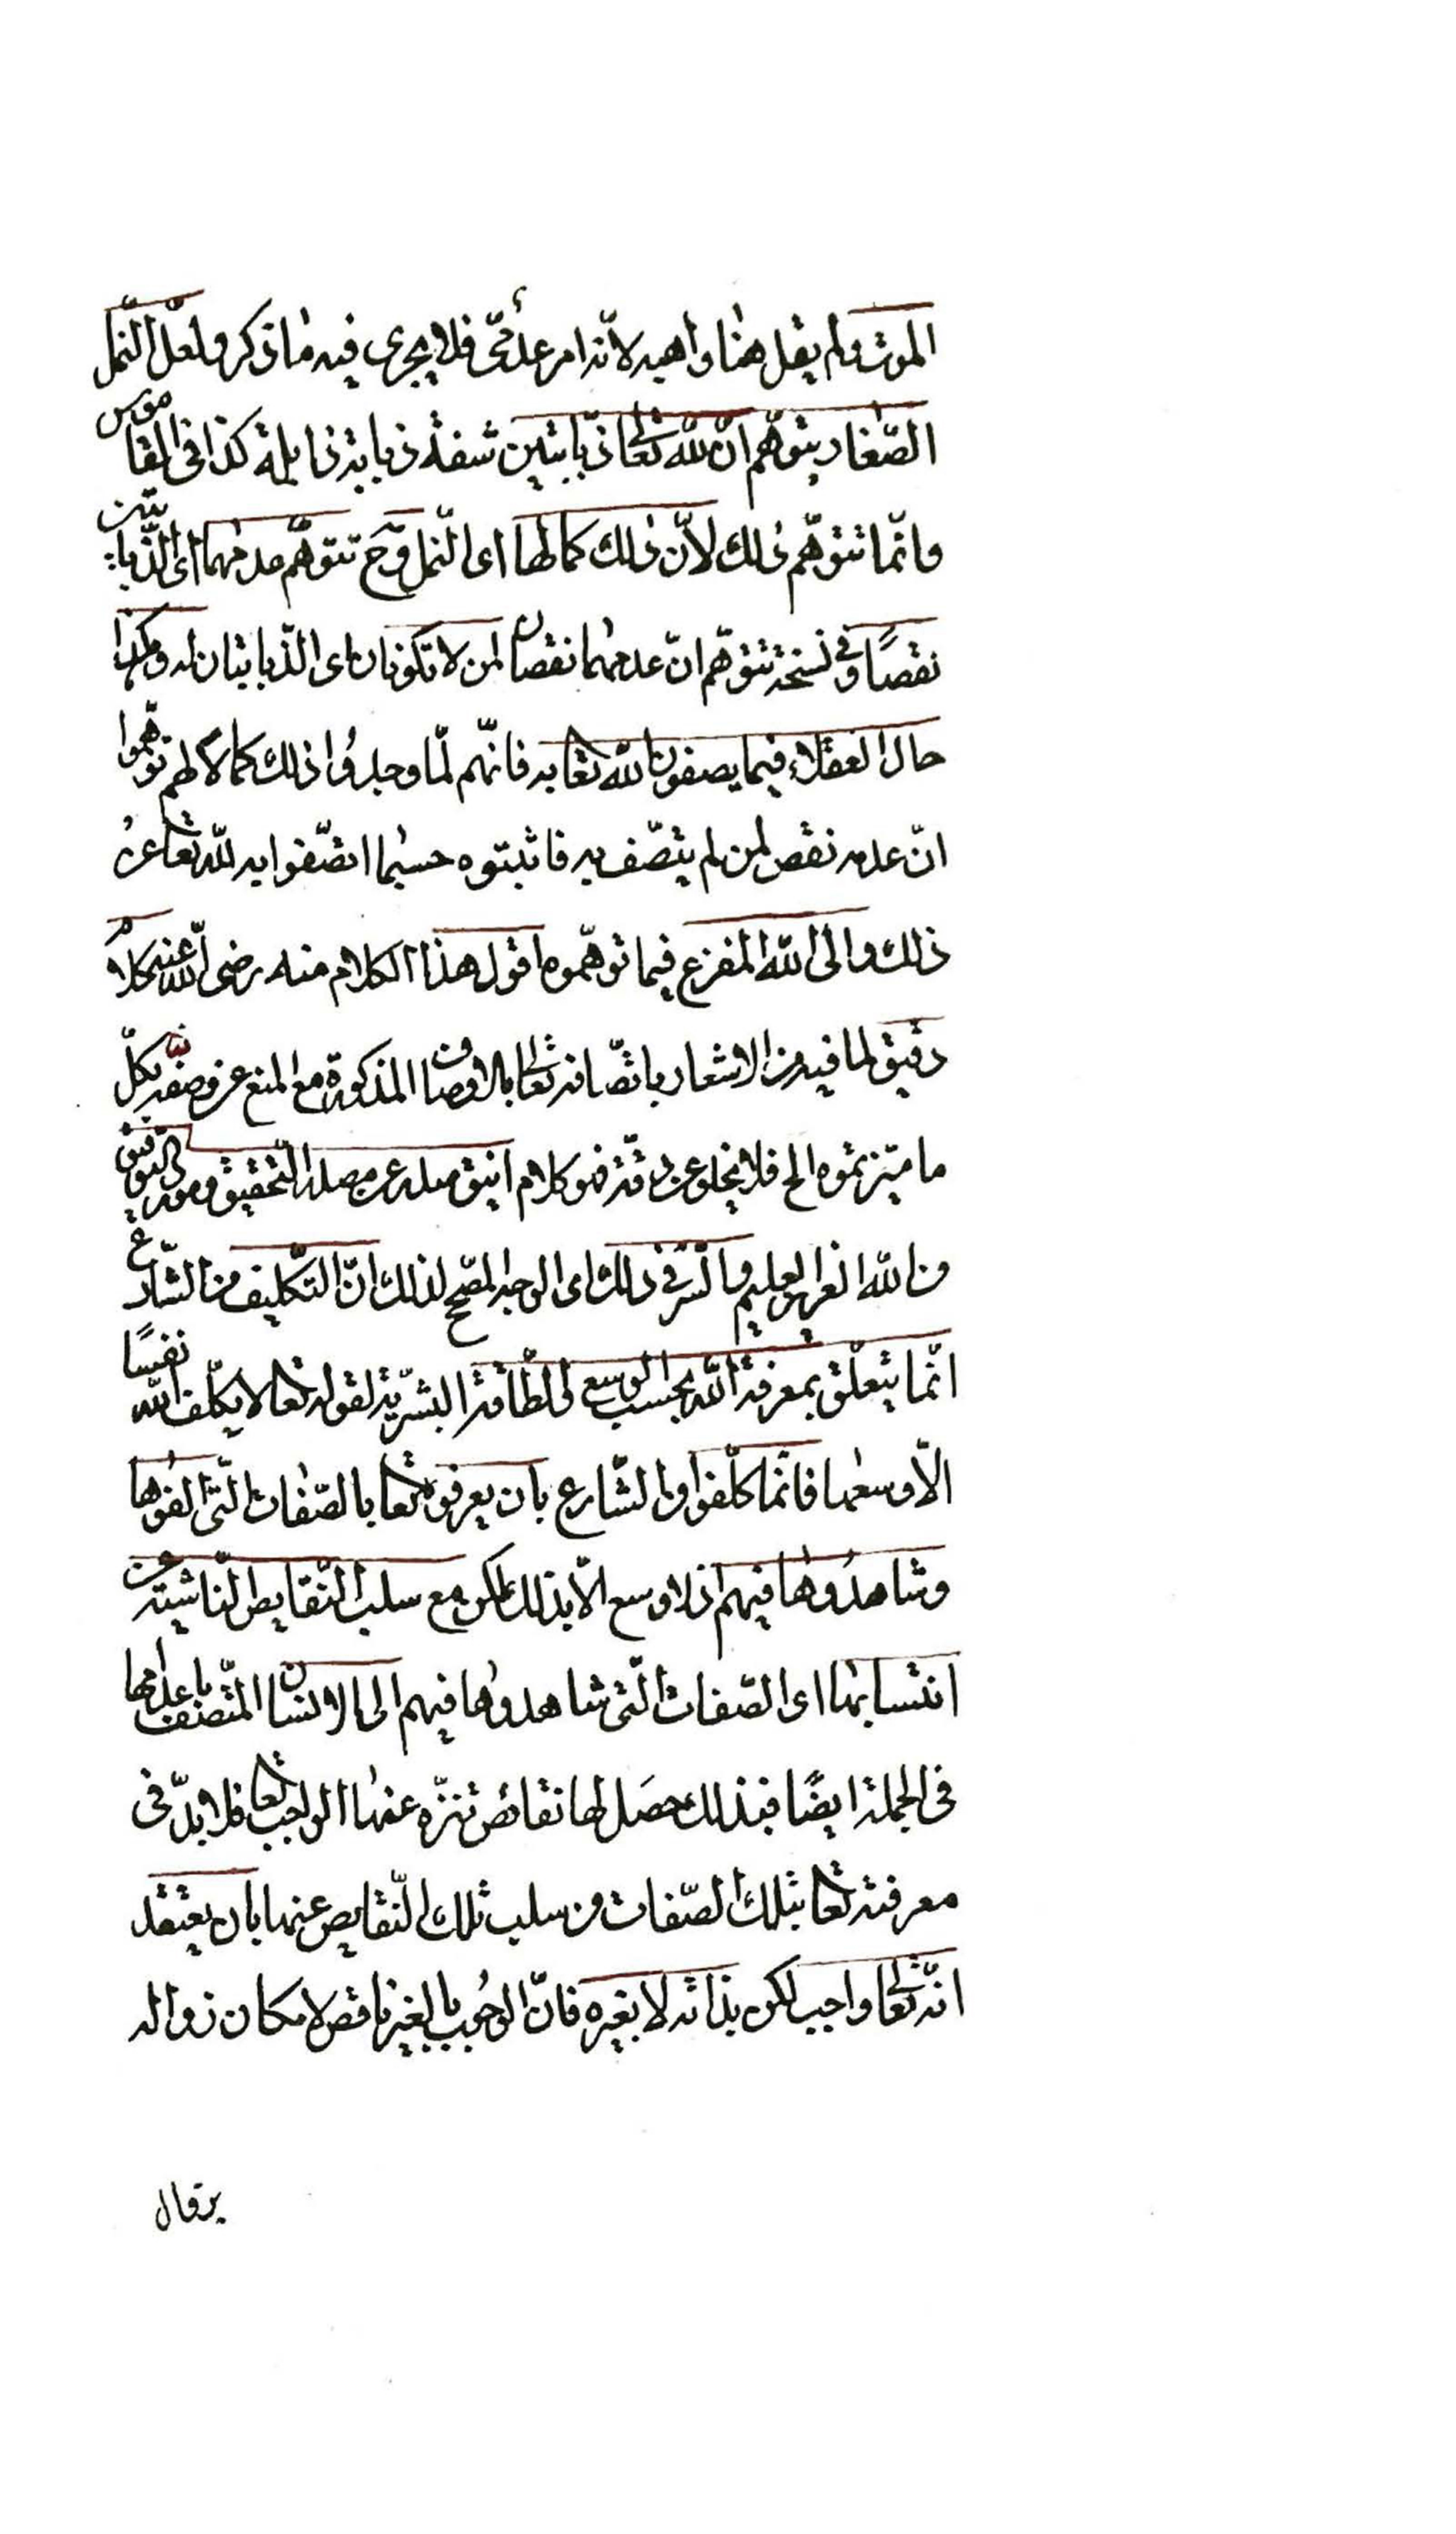 الموت ولم يقل هنا واهبه لانّه امر عدمىّ فلا يجرى فيه ما ذكر ولعلّ النّمل
الصّغار يتوهّم انّ لله تعا ذبابتين شفة ذبابة ذابلة كذا فى القاموس
وانّما تتوهّم ذلك لانّ ذلك كمالها اى النّمل وح تتوهّم عدمهما اى الذّبابتين
نقصًا وفى نسخة تتوهّم انّ عدمهما نقصان لمن لا تكونان اى الذّبابتان له وهكذا
حال العقلاء فيما يصفون الله تعا به فانّهم لمّا وجدوا ذلك كمالا لهم توهّموا
انّ عدمه نقص لمن لم يتّصف به فاثبتوه حسبما اتّصفوا به لله تعا عن
ذلك والى الله المفزع فيما توهّموه اقول هذا الكلام منه رضى الله عنه كلام
دقيق لما فيه من الاشعار باتّصافه تعا بالاوصاف المذكورة مع المنع عن وصفه بكلّ
ما ميّزتموه الخ فلا يخلو عن دقّة فهو كلام انيق صدر عن مصدر التّحقيق ومورد التوفيق
من الله العزيز العليم والسّر فى ذلك اى الوجه المصحّح لذلك انّ التّكليف من الشّارع
انّما يتعلّق بمعرفة الله بحسب الوسع اى الطّاقة البشريّة لقوله تعا لا يكلّف الله نفسًا
الاّ وسعها فانّما كلّفوا من الشّارع بان يعرفوه تعا بالصّفات الّتى الفوها
وشاهدوها فيهم اذ لا وسع الاّ بذلك لكن مع سلب النّقايص النّاشية عن
انتسابها اى الصّفات الّتى شاهدوها فيهم الى الانسان المتّصف باعدامها
فى الجملة ايضًا فبذلك حصَل لها نقائص تنزّه عنها الواجب تعا فلا بدّ فى
معرفته تعا بتلك الصّفات من سلب تلك النّقايص عنها بان يعتقد
انّه تعا واجب لكن بذاته لا بغيره فانّ الوجُوب بالغير ناقص لامكان زواله